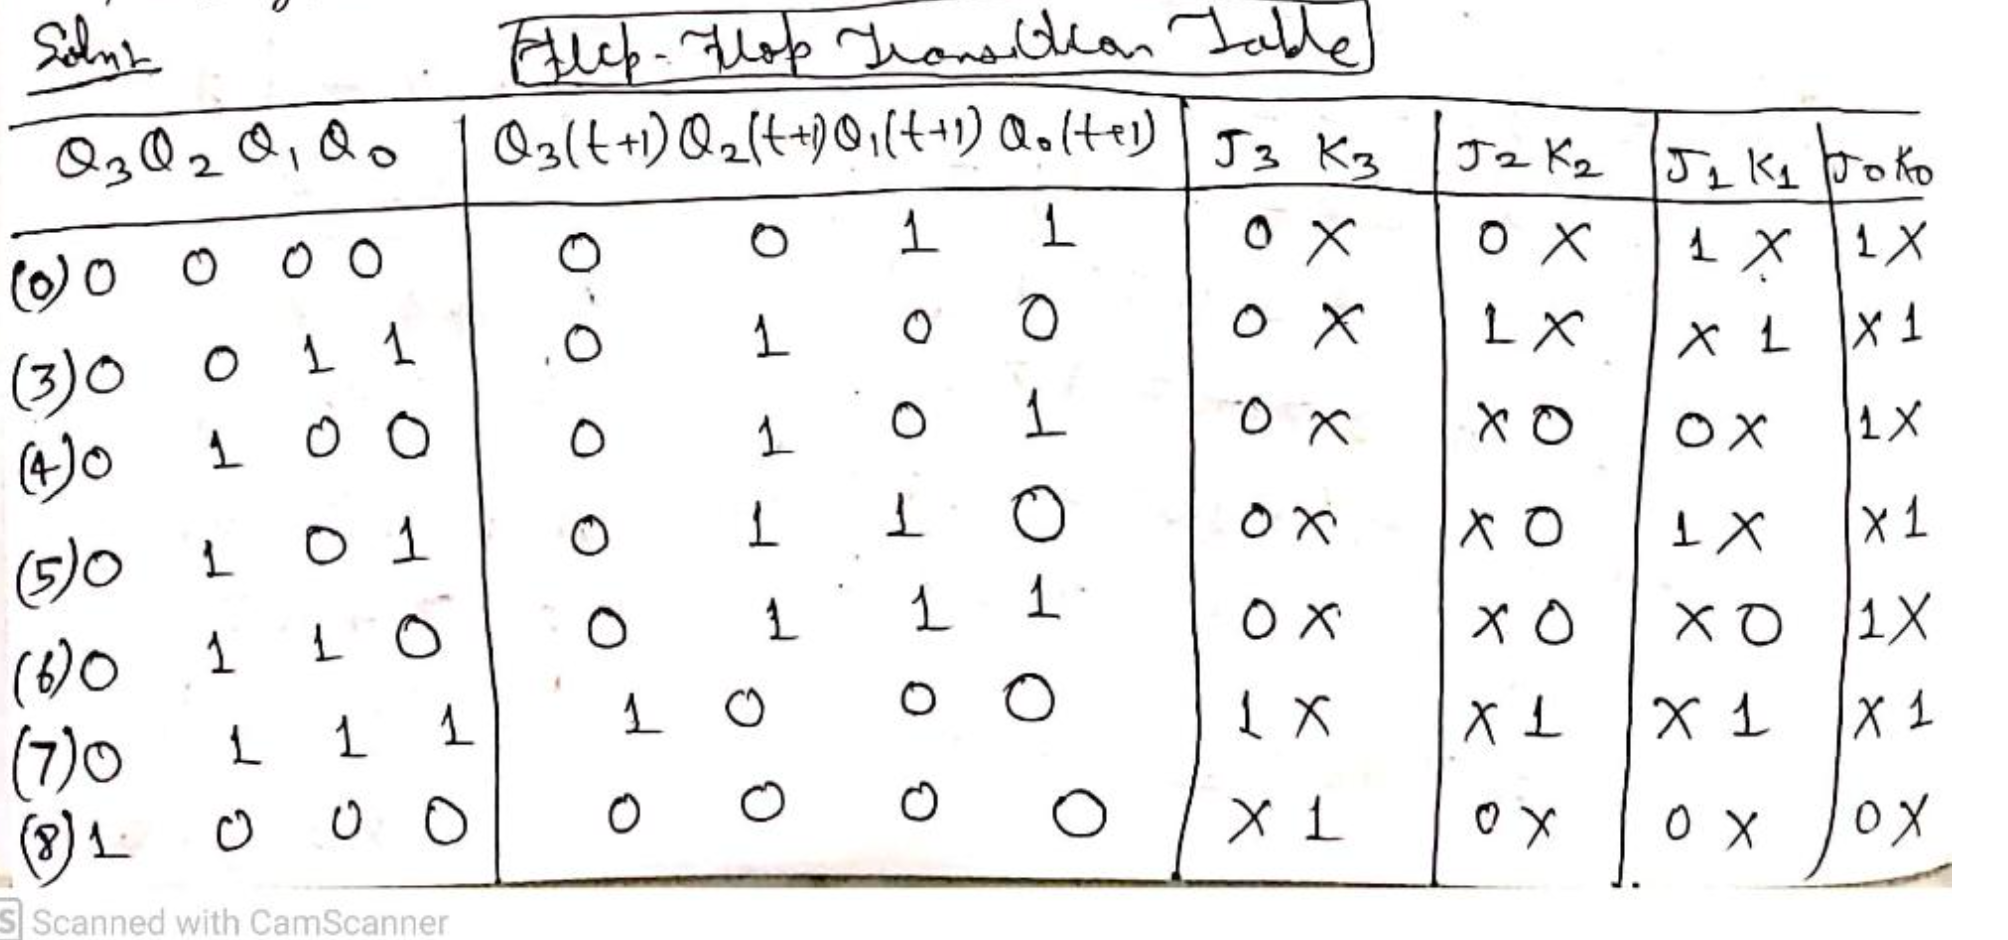 Soln:
Flip-Flop Transition Table
Q3 Q2 Q1 Q0 Q3(t+1) Q2(t+1) Q1(t+1) Q0(t+1) J3 K3 J2 K2 J1 K1 J0 K0
(0) 0 0 0 0 0 0 1 1 0 X 0 X 1 X 1 X
(3) 0 0 1 1 0 1 0 0 0 X 1 X X 1 X 1
(4) 0 1 0 0 0 1 0 1 0 X X 0 0 X 1 X
(5) 0 1 0 1 0 1 1 0 0 X X 0 1 X X 1
(6) 0 1 1 0 0 1 1 1 0 X X 0 X 0 1 X
(7) 0 1 1 1 1 0 0 0 1 X X 1 X 1 X 1
(8) 1 0 0 0 0 0 0 0 X 1 0 X 0 X 0 X
S Scanned with CamScanner